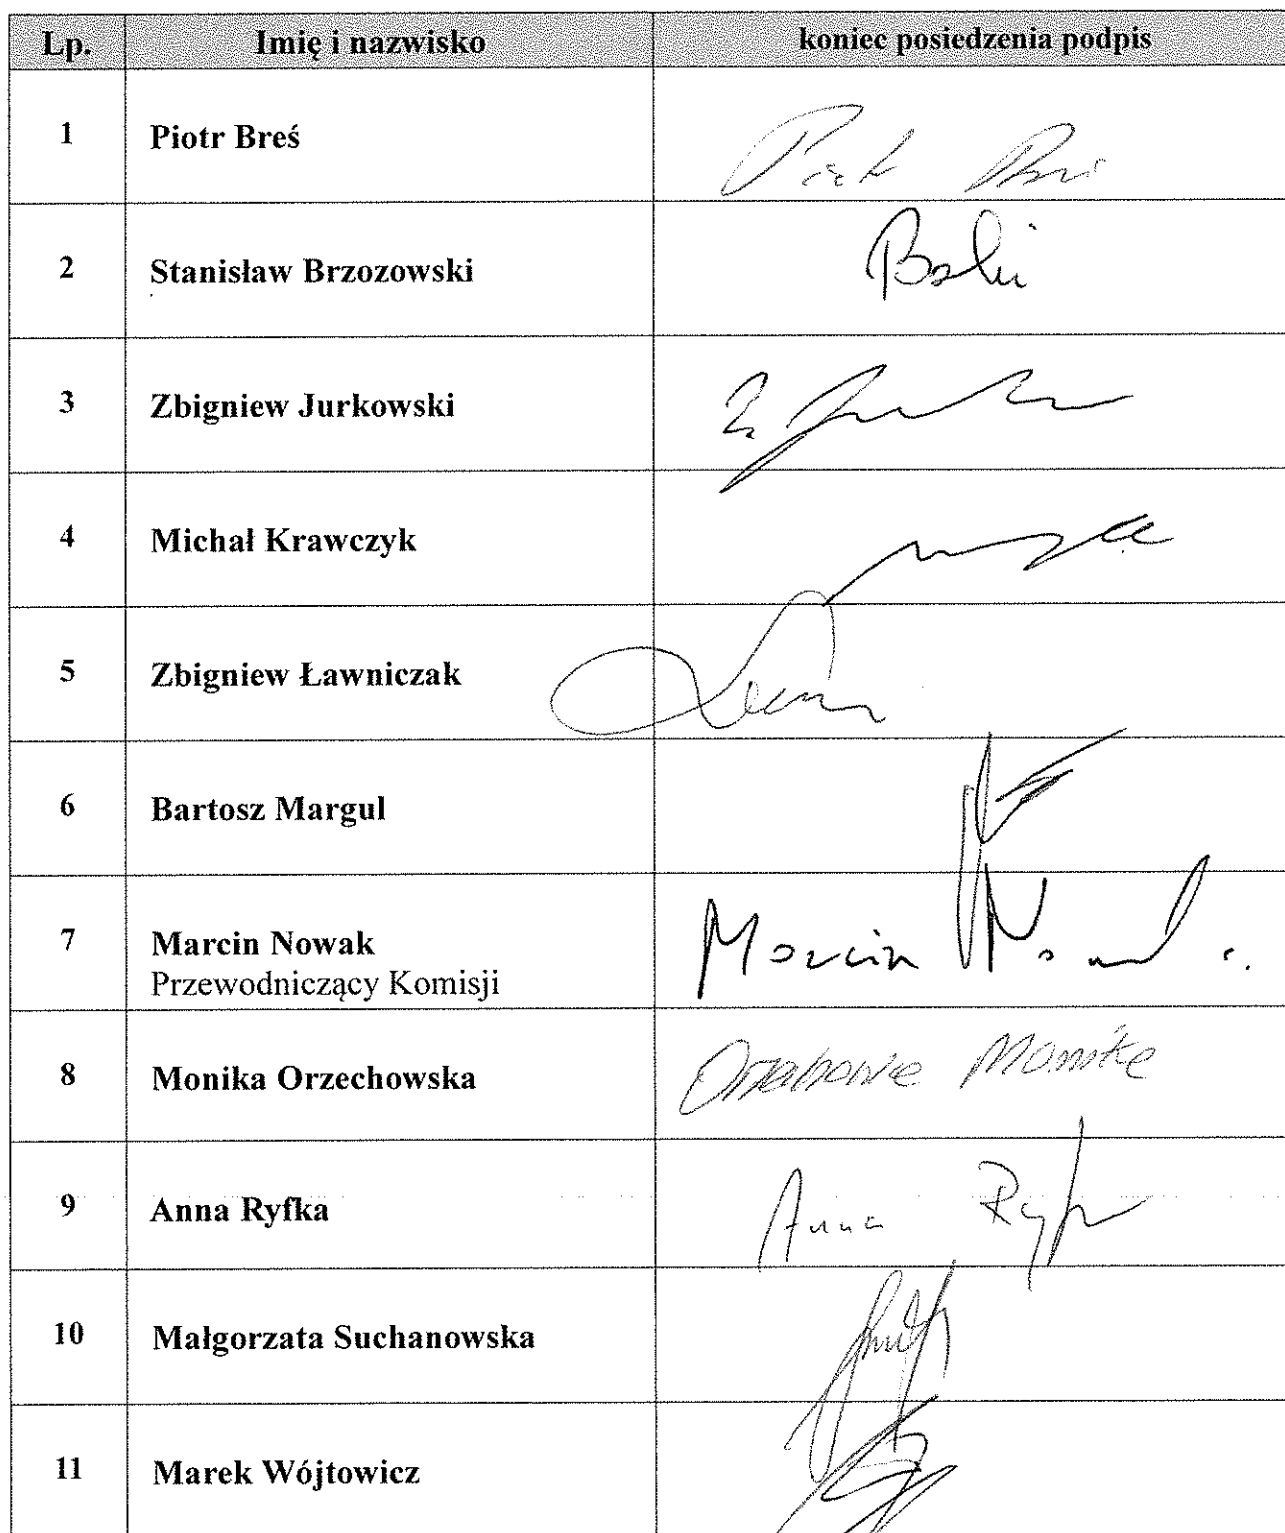 Lp. Imię i nazwisko koniec posiedzenia podpis
1 Piotr Breś
2 Stanisław Brzozowski
3 Zbigniew Jurkowski
4 Michał Krawczyk
5 Zbigniew Ławniczak
6 Bartosz Margul
7 Marcin Nowak Marcin
Przewodniczący Komisji
8 Monika Orzechowska
9 Anna Ryfka Anna
10 Małgorzata Suchanowska
11 Marek Wójtowicz